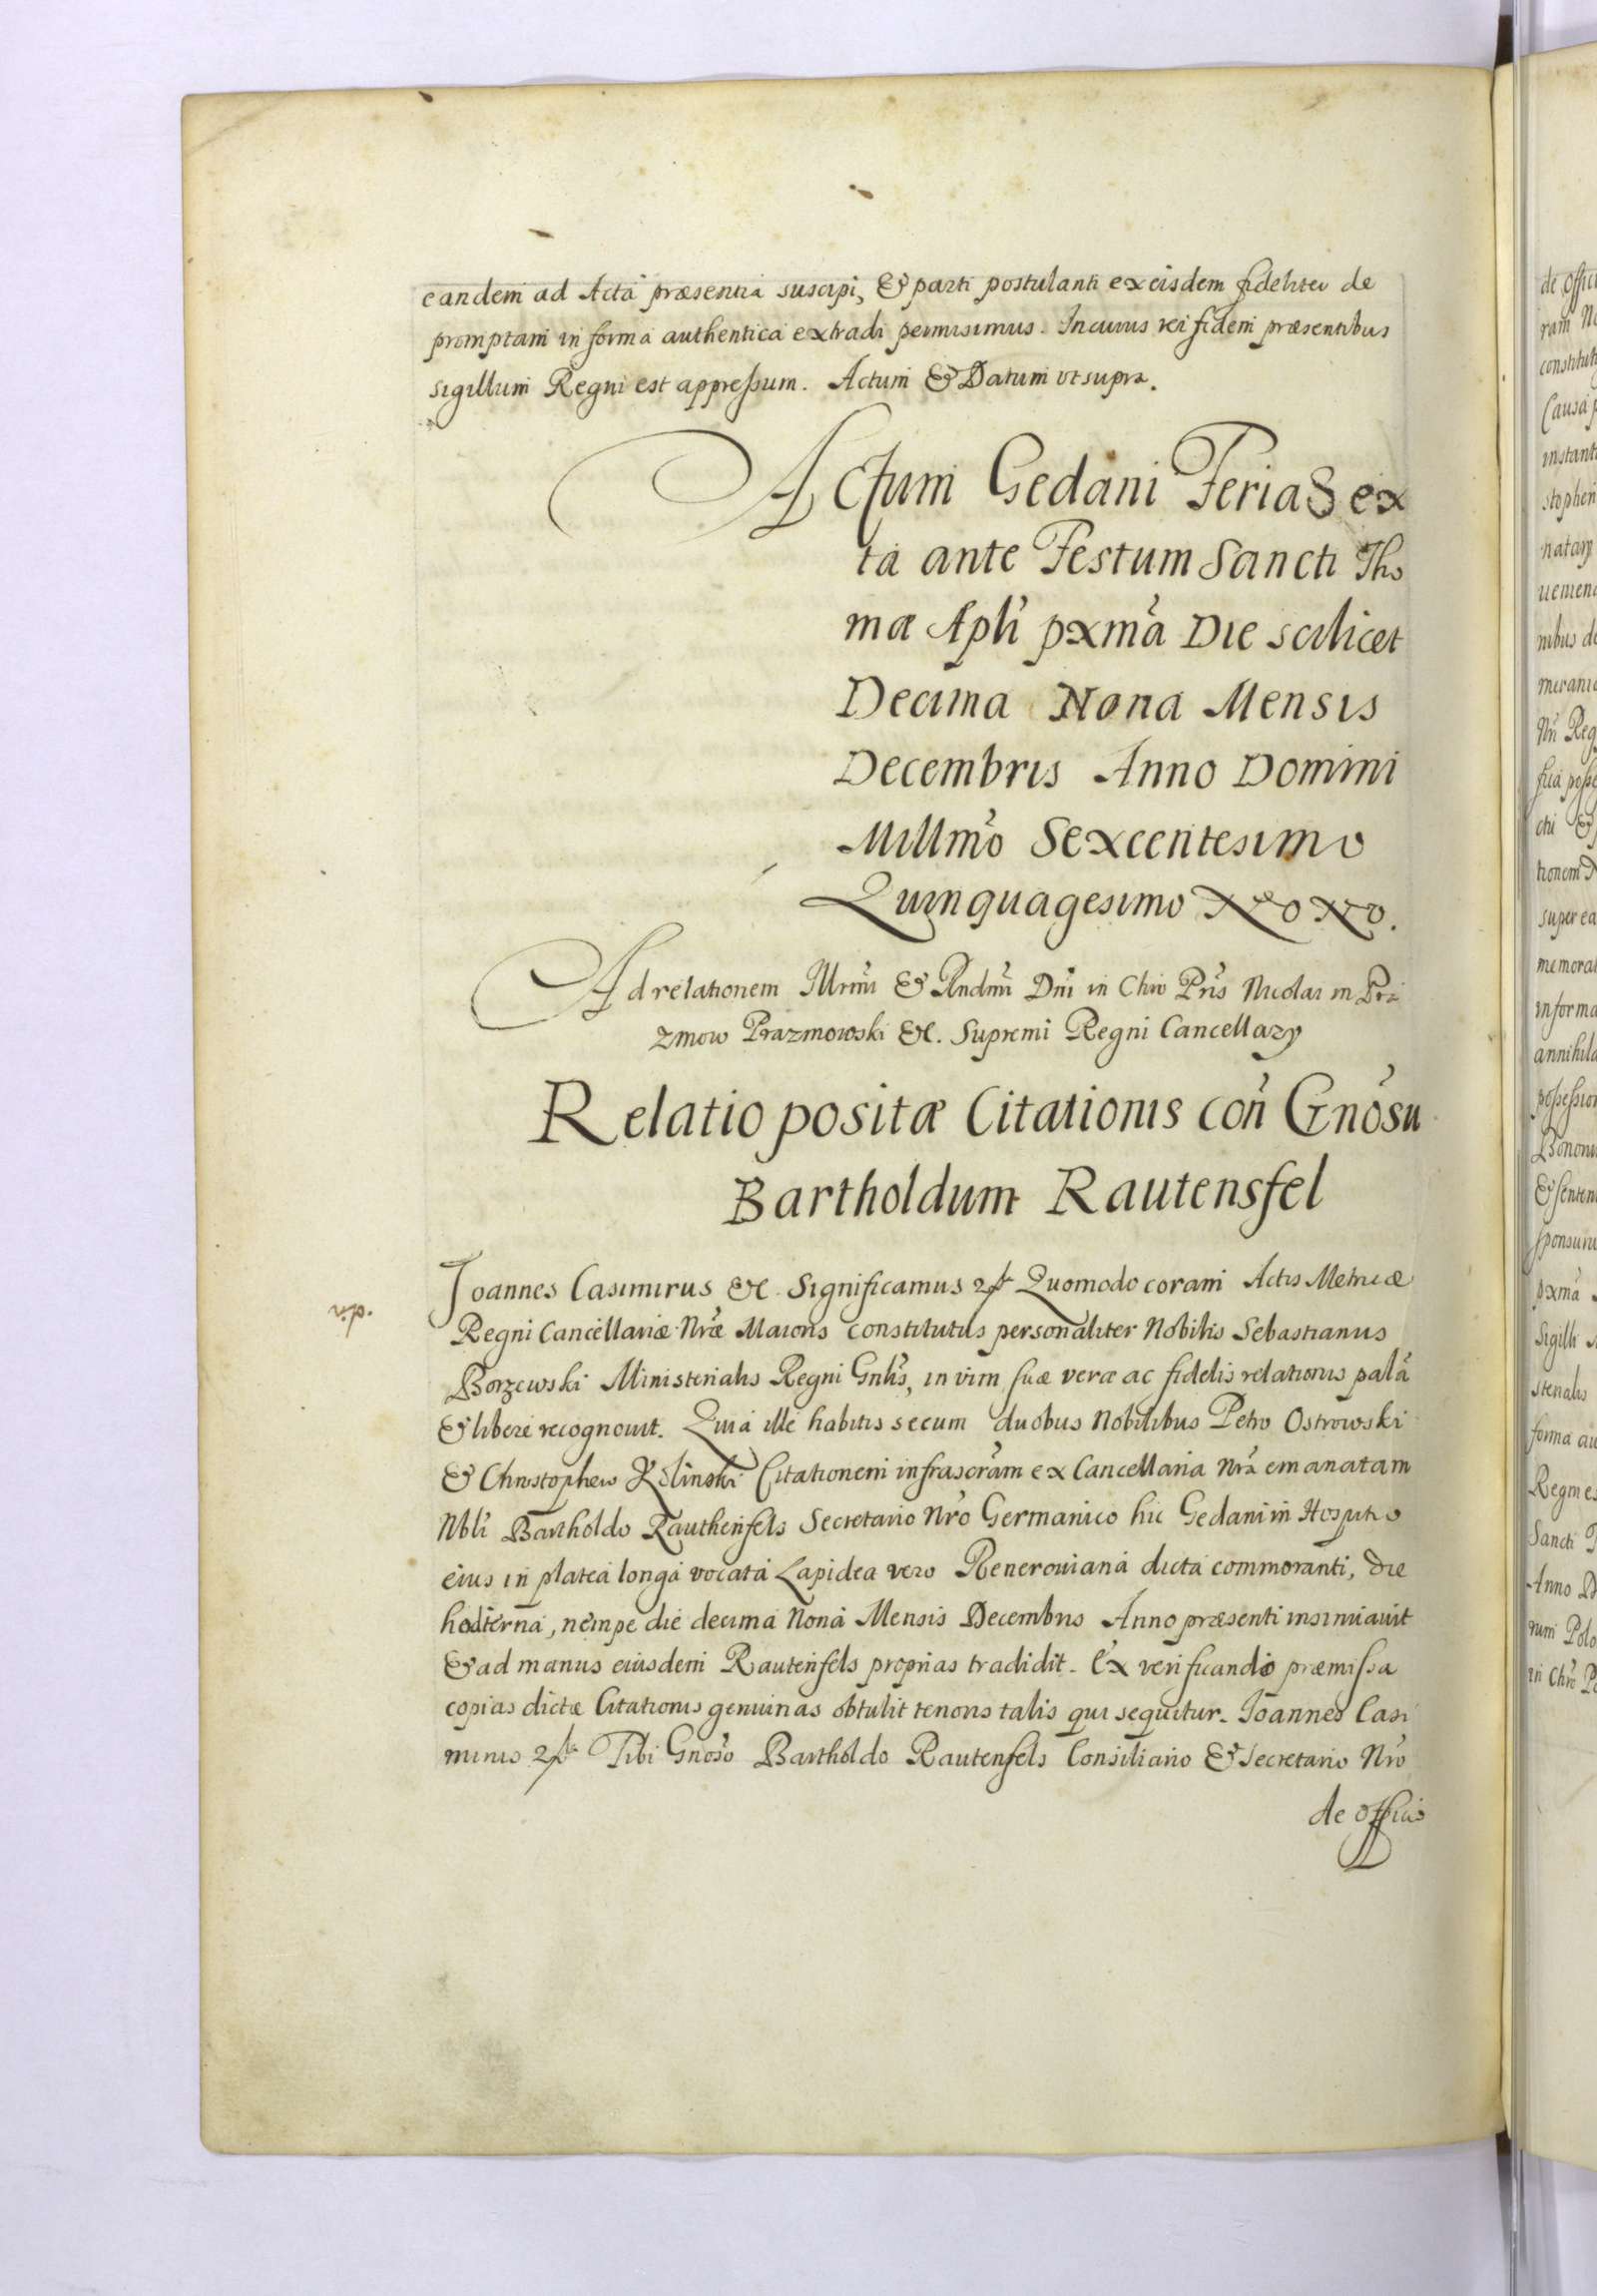 eandem ad Acta præsentia suscipi, & parti postulanti ex eisdem fideliter de
promptam in forma authentica extradi permisimus. In cuius rei fidem præsentibus
sigillum Regni est appressum. Actum & Datum ut supra.
Actum Gedani Feria Sex
ta ante Festum Sancti Tho
mæ Apli pxma Die scilicet
Decima Nona Mensis
Decembris Anno Domini
Millmo Sexcentesimo
Quinquagesimo Nono.
Ad relationem Illrmi & Rndmi Dni in Chro Pris Nicolai in Pra
zmow Prazmowski &c. Supremi Regni Cancellarij
Relatio positæ Citationis con Gnosu
Bartholdum Rautensfel
Joannes Casimirus &c. Significamus Quomodo coram Actis Metricæ
Regni Cancellariæ Nræ Maioris constitutus personaliter Nobilis Sebastianus
Borzewski Ministerialis Regni Gnlis, in vim suæ veræ ac fidelis relationis palã
& libere recognouit. Quia ille habitis secum duobus Nobilibus Petro Ostrowski
& Christophero Kolinski Citationem infrascram ex Cancellaria Nra emanatam
Nbli Bartholdo Rauthenfels Secretario Nro Germanico hic Gedani in Hospitio
eius in platea longa vocata Lapidea vero Renerouiana dicta commoranti, die
hodierna, nempe die decima Nona Mensis Decembris Anno præsenti insinuauit
& ad manus eiusdem Rautenfels proprias tradidit. Ex verificando præmissa
copias dictæ Citationis genuinas obtulit tenoris talis qui sequitur. Joannes Casi
mirus Tibi Gnoso Bartholdo Rautenfels Consiliario & Secretario Nro
de officio